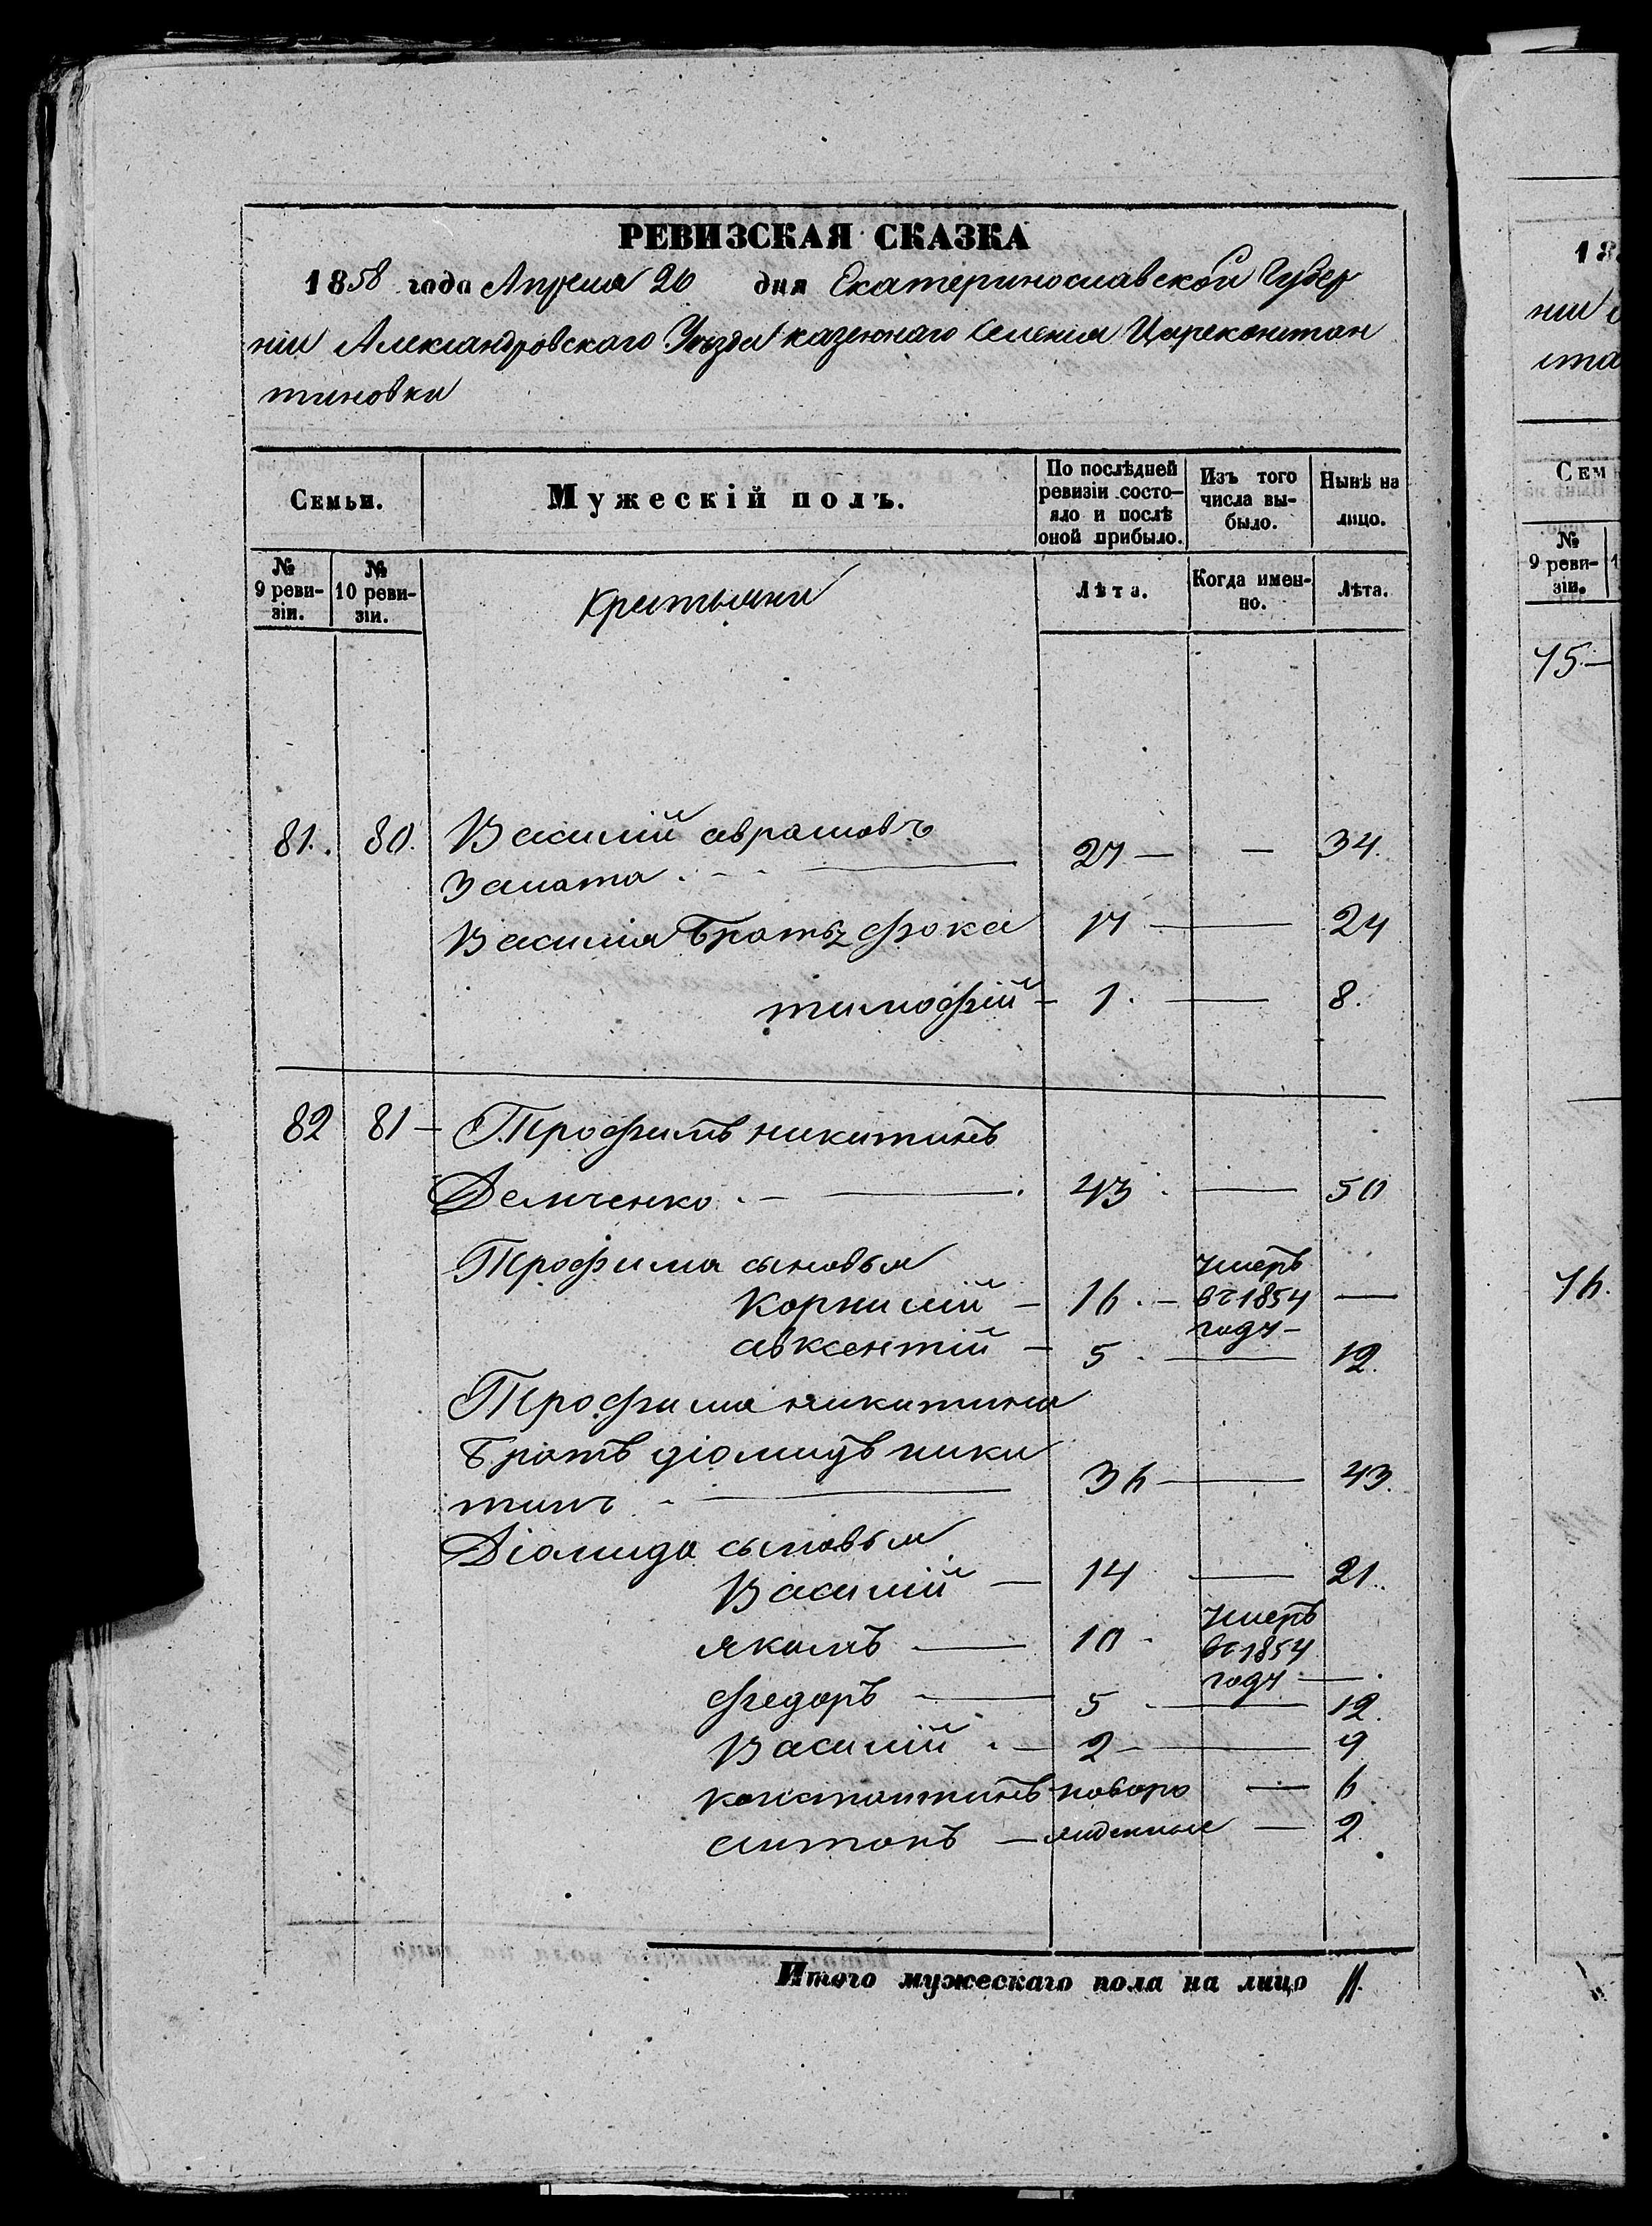 РЕВИЗСКАЯ СКАЗКА
1858 года Апреля 26 дня Екатеринославской Губер
ніи Александровскаго Уѣзда казеннаго селенія Цареконстан
тиновки
Семьи.
Мужескій полъ.
По послѣдней ревизіи состо-яло и послѣ оной прибыло.
Изъ того числа вы-было.
Нынѣ на лицо.
№ 9 реви-зіи.
№ 10 реви-зіи.
крестьяне
Лѣта.
Когда имен-но.
Лѣта.
81. 80. Василій аврамовъ
27 — — 34.
Василія братъ фока 17 — 24
тимофій — 1. — 8.
82 81 — Трофимъ никитинъ
Демченко. — 43. — 50
Трофима сыновья
корнилій — 16. — умеръ въ 1854 году —
авксентій — 5. — 12.
Трофима никитина
братъ діомидъ ники
тинъ — 36 — 43.
Діомида сыновья
Василій — 14 — 21.
якимъ — 10 - умеръ въ 1854 году —
федоръ — 5 — 12.
Василій. — 2 — 9
константинъ новоро — 6
антонъ — жденные — 2.
Итого мужескаго пола на лицо 11.
18
ніи
ста
Сем
№ 9 реви-зіи.
75 —
76.